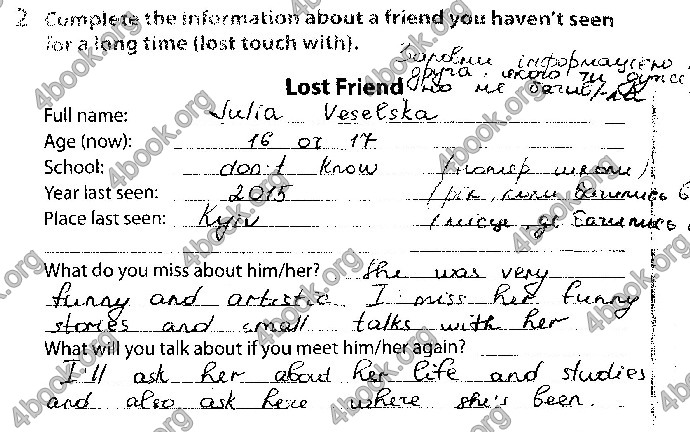 2 Complete the information about a friend you haven't seen
for a long time (lost touch with).
Заповни інформацією
друга, якого ти дуже
не бачив/ла
Lost Friend
Full name: Julia Veselska
Age (now): 16 or 17
School: don't know /номер школи/
Year last seen: 2015 /рік, коли бачились в
Place last seen: Kyiv /місце, де бачились
What do you miss about him/her? She was very
funny and artistic I miss her funny
stories and small talks with her
What will you talk about if you meet him/her again?
I'll ask her about her life and studies
and also ask here where she's been.
4book.org